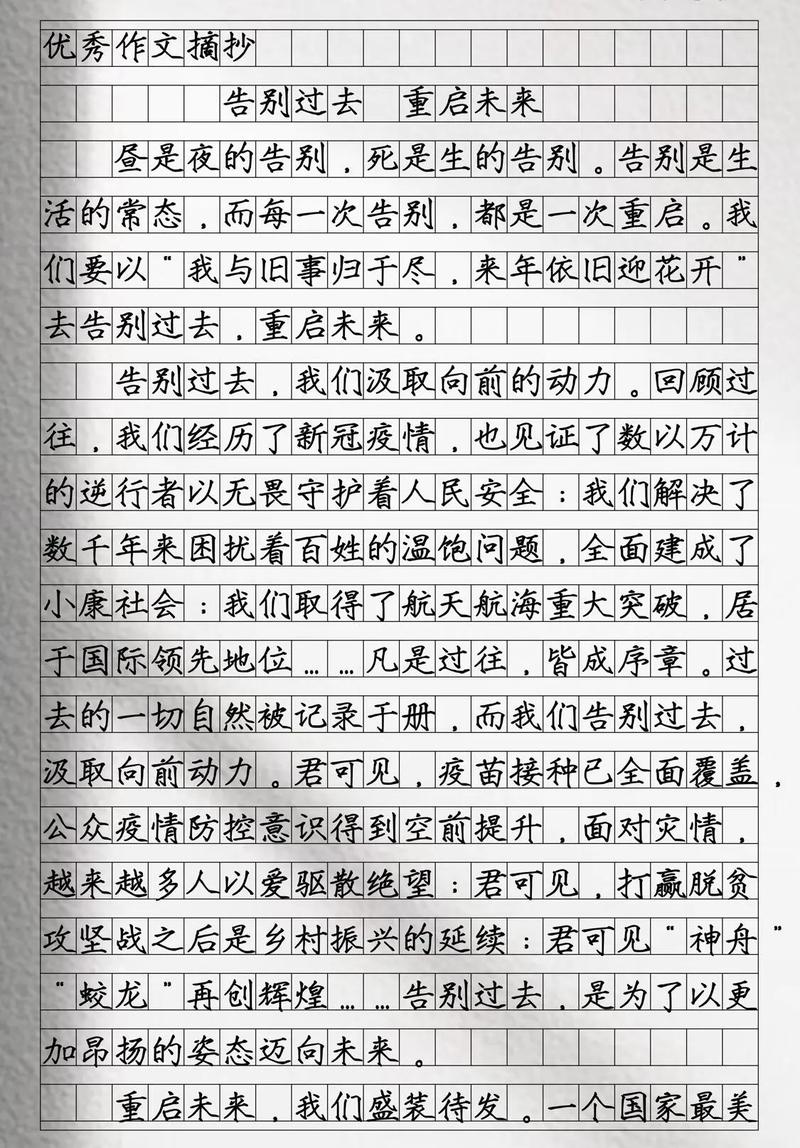 优秀作文摘抄
告别过去 重启未来
昼是夜的告别，死是生的告别。告别是生
活的常态，而每一次告别，都是一次重启。我
们要以“我与旧事归于尽，来年依旧迎花开”
去告别过去，重启未来。
告别过去，我们汲取向前的动力。回顾过
往，我们经历了新冠疫情，也见证了数以万计
的逆行者以无畏守护着人民安全：我们解决了
数千年来困扰着百姓的温饱问题，全面建成了
小康社会：我们取得了航天航海重大突破，居
于国际领先地位……凡是过往，皆成序章。过
去的一切自然被记录于册，而我们告别过去，
汲取向前动力。君可见，疫苗接种已全面覆盖，
公众疫情防控意识得到空前提升，面对灾情，
越来越多人以爱驱散绝望：君可见，打赢脱贫
攻坚战之后是乡村振兴的延续：君可见“神舟”
“蛟龙”再创辉煌……告别过去，是为了以更
加昂扬的姿态迈向未来。
重启未来，我们盛装待发。一个国家最美